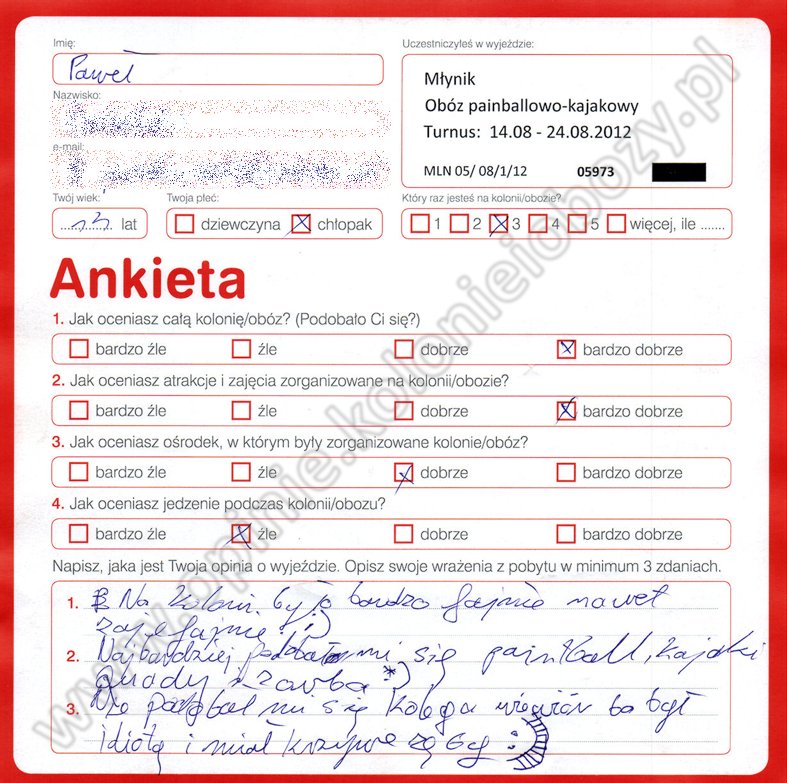 Imię:
Paweł
Nazwisko:
e-mail:
Twój wiek:
13 lat
Twoja płeć:
dziewczyna chłopak
Uczestniczyłeś w wyjeździe:
Młynik
Obóz painballowo-kajakowy
Turnus: 14.08 - 24.08.2012
MLN 05/ 08/1/12 05973
Który raz jesteś na kolonii/obozie?
1 2 3 4 5 więcej, ile .......
Ankieta
1. Jak oceniasz całą kolonię/obóz? (Podobało Ci się?)
bardzo źle źle dobrze bardzo dobrze
2. Jak oceniasz atrakcje i zajęcia zorganizowane na kolonii/obozie?
bardzo źle źle dobrze bardzo dobrze
3. Jak oceniasz ośrodek, w którym były zorganizowane kolonie/obóz?
bardzo źle źle dobrze bardzo dobrze
4. Jak oceniasz jedzenie podczas kolonii/obozu?
bardzo źle źle dobrze bardzo dobrze
Napisz, jaka jest Twoja opinia o wyjeździe. Opisz swoje wrażenia z pobytu w minimum 3 zdaniach.
1. Na koloni było bardzo fajnie nawet
zajefajnie! ;)
2. Najbardziej podobało mi się paintball, kajaki
quady i *)
3. Nie podobał mi się kolega bo był
idiotą i miał krzywe zęby :)
www.opinie.kolonieiobozy.pl